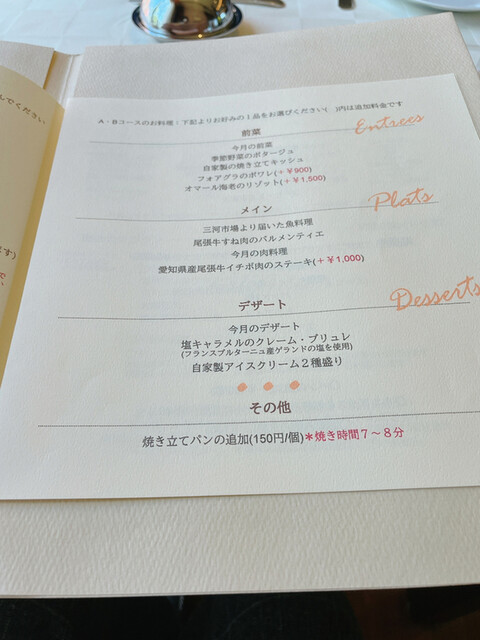 んでください
A・Bコースのお料理:下記よりお好みの1品をお選びください( )内は追加料金です
前菜
Entrees
今月の前菜
季節野菜のポタージュ
自家製の焼き立てキッシュ
フォアグラのポワレ(+¥900)
オマール海老のリゾット(+¥1,500)
メイン
Plats
三河市場より届いた魚料理
尾張牛すね肉のパルメンティエ
今月の肉料理
愛知県産尾張牛イチボ肉のステーキ(+¥1,000)
デザート
Desserts
今月のデザート
塩キャラメルのクレーム・ブリュレ
(フランスブルターニュ産ゲランドの塩を使用)
自家製アイスクリーム2種盛り
その他
焼き立てパンの追加(150円/個)*焼き時間7~8分